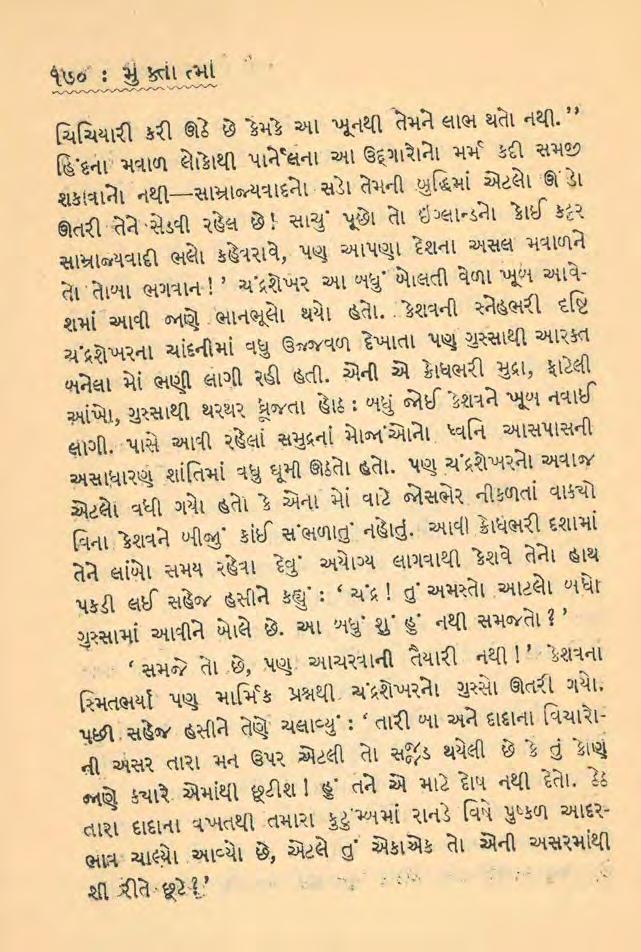 ૧૭૦ : મુ ક્તા ત્મા
ચિચિયારી કરી ઊઠે છે કેમકે આ ખૂનથી તેમને લાભ થતો નથી.”
હિંદના મવાળ લોકોથી પાર્નેલના આ ઉદ્‌ગારોનો મર્મ કદી સમજી
શકાવાનો નથી—સામ્રાજ્યવાદનો સડો તેમની બુદ્ધિમાં એટલો ઊંડો
ઊતરી તેને સેડવી રહેલ છે! સાચું પૂછો તો ઇંગ્લાન્ડનો કોઈ કટ્ટર
સામ્રાજ્યવાદી ભલો કહેવરાવે, પણ આપણા દેશના અસલ મવાળને
તો તોબા ભગવાન!’ ચંદ્રશેખર આ બધું બોલતી વેળા ખૂબ આવે-
શમાં આવી જાણે ભાનભૂલો થયો હતો. કેશવની સ્નેહભરી દૃષ્ટિ
ચંદ્રશેખરના ચાંદનીમાં વધુ ઉજ્જવળ દેખાતા પણ ગુસ્સાથી આરક્ત
બનેલા મોં ભણી લાગી રહી હતી. એની એ ક્રોધભરી મુદ્રા, ફાટેલી
આંખો, ગુસ્સાથી થરથર ધ્રૂજતા હોઠ : બધું જોઈ કેશવને ખૂબ નવાઈ
લાગી. પાસે આવી રહેલાં સમુદ્રનાં મોજાંઓનો ધ્વનિ આસપાસની
અસાધારણ શાંતિમાં વધુ ઘૂમી ઊઠતો હતો. પણ ચંદ્રશેખરનો અવાજ
એટલો વધી ગયો હતો કે એના મોં વાટે જોસભેર નીકળતાં વાક્યો
વિના કેશવને બીજું કાંઈ સંભળાતું નહોતું. આવી ક્રોધભરી દશામાં
તેને લાંબો સમય રહેવા દેવું અયોગ્ય લાગવાથી કેશવે તેનો હાથ
પકડી લઈ સહેજ હસીને કહ્યું : ‘ચંદ્ર! તું અમસ્તો આટલો બધો
ગુસ્સામાં આવીને બોલે છે. આ બધું શું હું નથી સમજતો?’
‘સમજે તો છે, પણ આચરવાની તૈયારી નથી!’ કેશવના
સ્મિતભર્યા પણ માર્મિક પ્રશ્નથી ચંદ્રશેખરનો ગુસ્સો ઊતરી ગયો.
પછી સહેજ હસીને તેણે ચલાવ્યું : ‘તારી બા અને દાદાના વિચારો-
ની અસર તારા મન ઉપર એટલી તો સજ્જડ થયેલી છે કે તું કોણ
જાણે ક્યારે એમાંથી છૂટીશ! હું તને એ માટે દોષ નથી દેતો. ઠેઠ
તારા દાદાના વખતથી તમારા કુટુમ્બમાં રાનડે વિષે પુષ્કળ આદર-
ભાવ ચાલ્યો આવ્યો છે, એટલે તું એકાએક તો એની અસરમાંથી
શી રીતે છૂટે?’